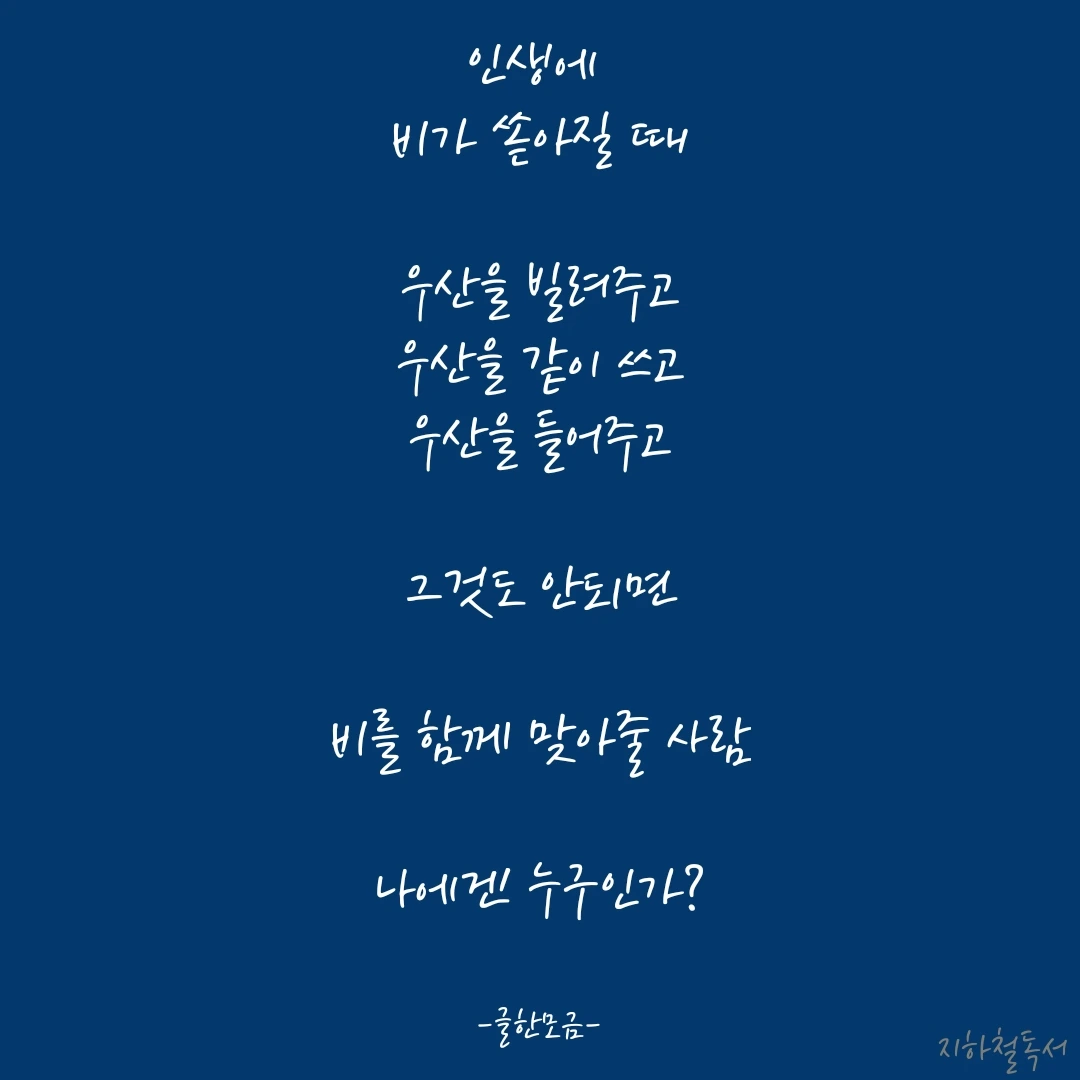 인생에
비가 쏟아질 때
우산을 빌려주고
우산을 같이 쓰고
우산을 들어주고
그것도 안되면
비를 함께 맞아줄 사람
나에겐 누구인가?
-글한모금-
지하철독서